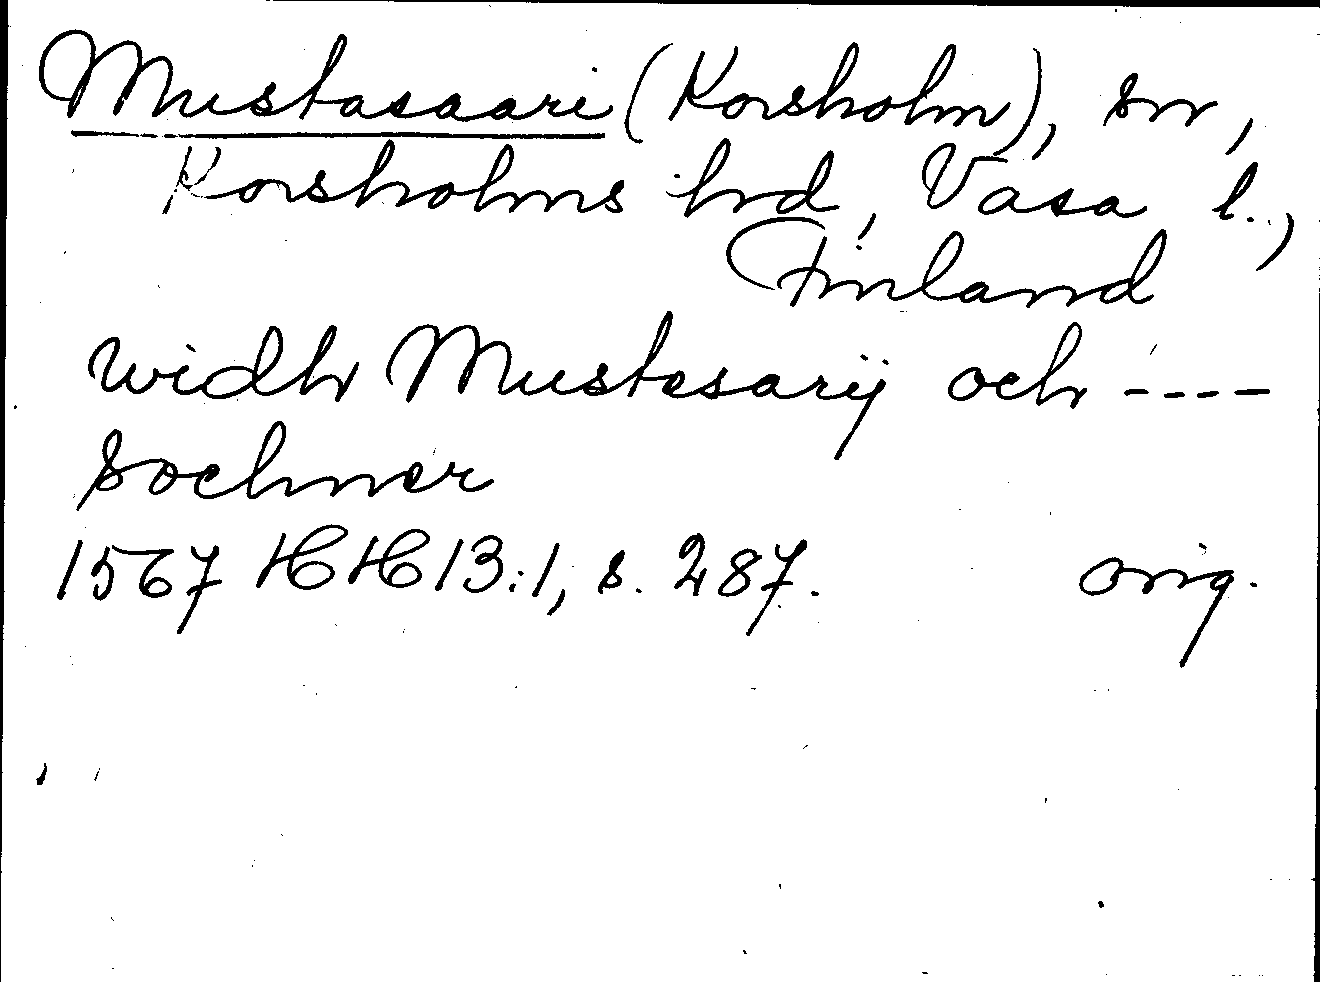 Mustasaari (Korsholm), sn,
Korsholms hrd, Vasa l.,
Finland
widh Mustesarij och ----
sochner
1567 HH 13:1, s. 287. orig.